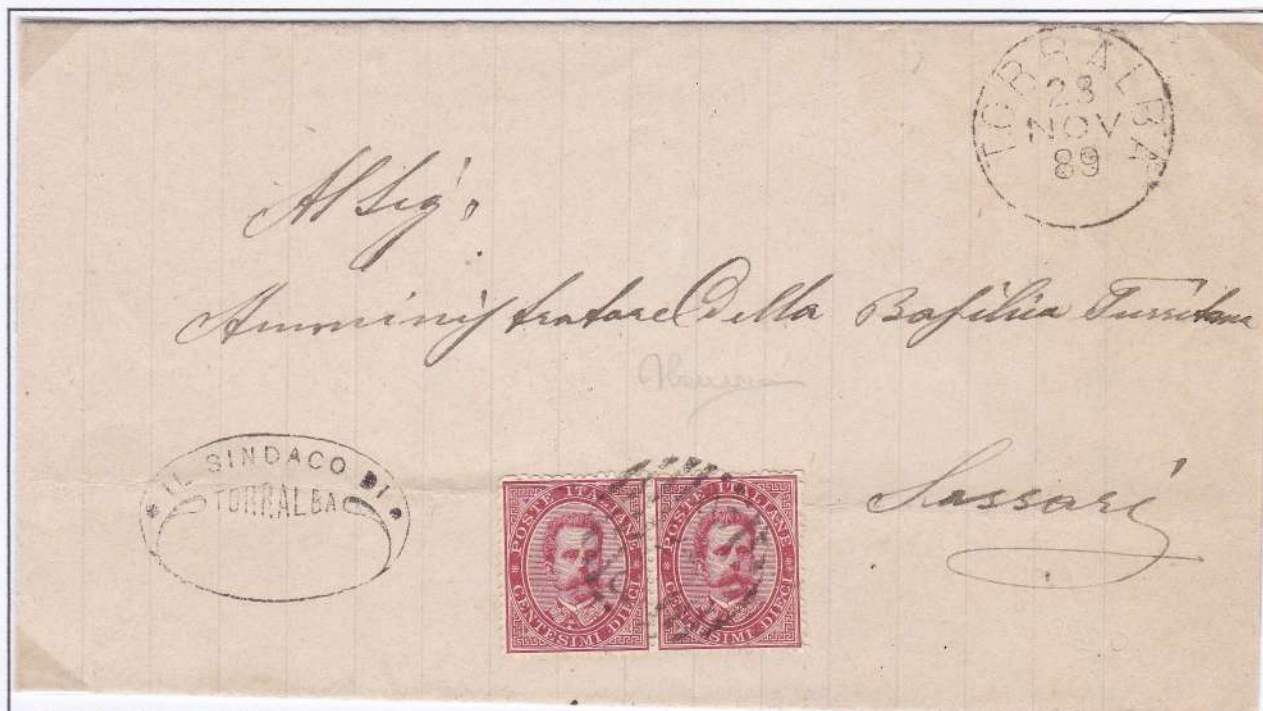 TORRALBA
28
NOV
89
Al Sig.
Amministratore Della Basilica Turritana
Sassari
IL SINDACO DI
TORRALBA
POSTE ITALIANE
CENTESIMI DIECI
POSTE ITALIANE
CENTESIMI DIECI